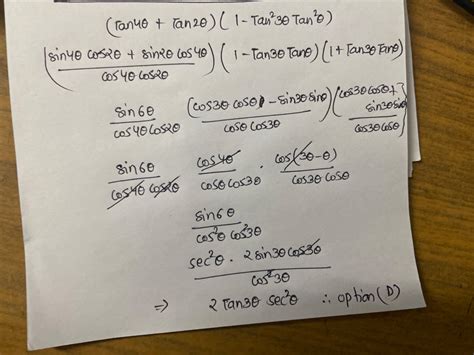 (Tan4θ + Tan2θ) (1 - Tan²3θ Tan²θ)
(sin4θ cos2θ + sin2θ cos4θ / cos4θ cos2θ) (1 - Tan3θ Tanθ) (1 + Tan3θ Tanθ)
sin6θ / cos4θ cos2θ (cos3θ cosθ - sin3θ sinθ) / cosθ cos3θ (cos3θ cosθ + sin3θ sinθ / cos3θ cosθ)
sin6θ / cos4θ cos2θ cos4θ / cosθ cos3θ · cos(3θ-θ) / cos3θ cosθ
sin6θ / cos²θ cos²3θ
sec²θ · 2 sin3θ cos3θ / cos²3θ
⇒ 2 Tan3θ sec²θ ∴ option (D)